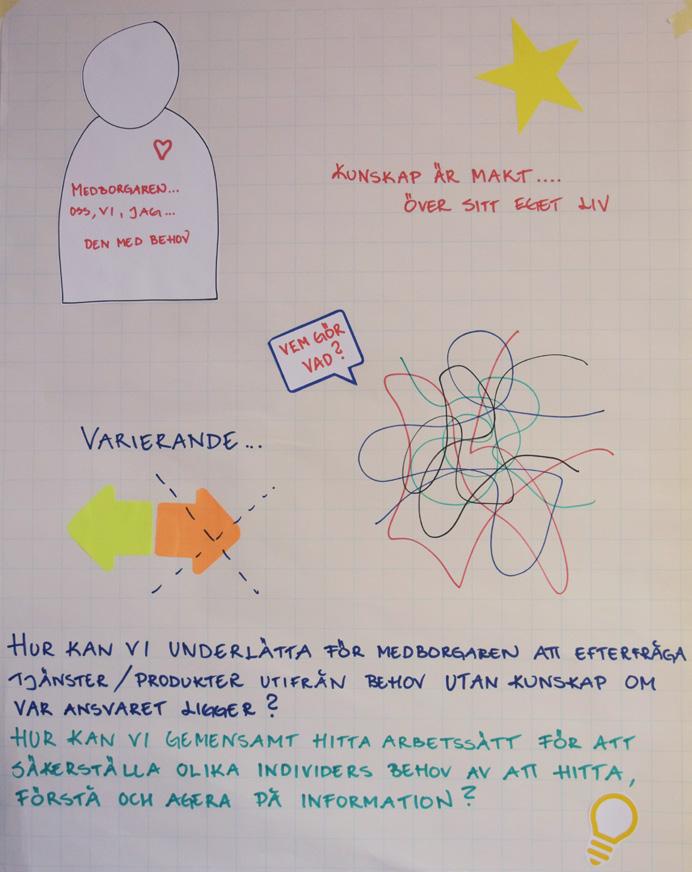 MEDBORGAREN...
OSS, VI, JAG...
DEN MED BEHOV
KUNSKAP ÄR MAKT....
ÖVER SITT EGET LIV
VEM GÖR
VAD?
VARIERANDE...
HUR KAN VI UNDERLÄTTA FÖR MEDBORGAREN ATT EFTERFRÅGA
TJÄNSTER/PRODUKTER UTIFRÅN BEHOV UTAN KUNSKAP OM
VAR ANSVARET LIGGER?
HUR KAN VI GEMENSAMT HITTA ARBETSSÄTT FÖR ATT
SÄKERSTÄLLA OLIKA INDIVIDERS BEHOV AV ATT HITTA,
FÖRSTÅ OCH AGERA PÅ INFORMATION?